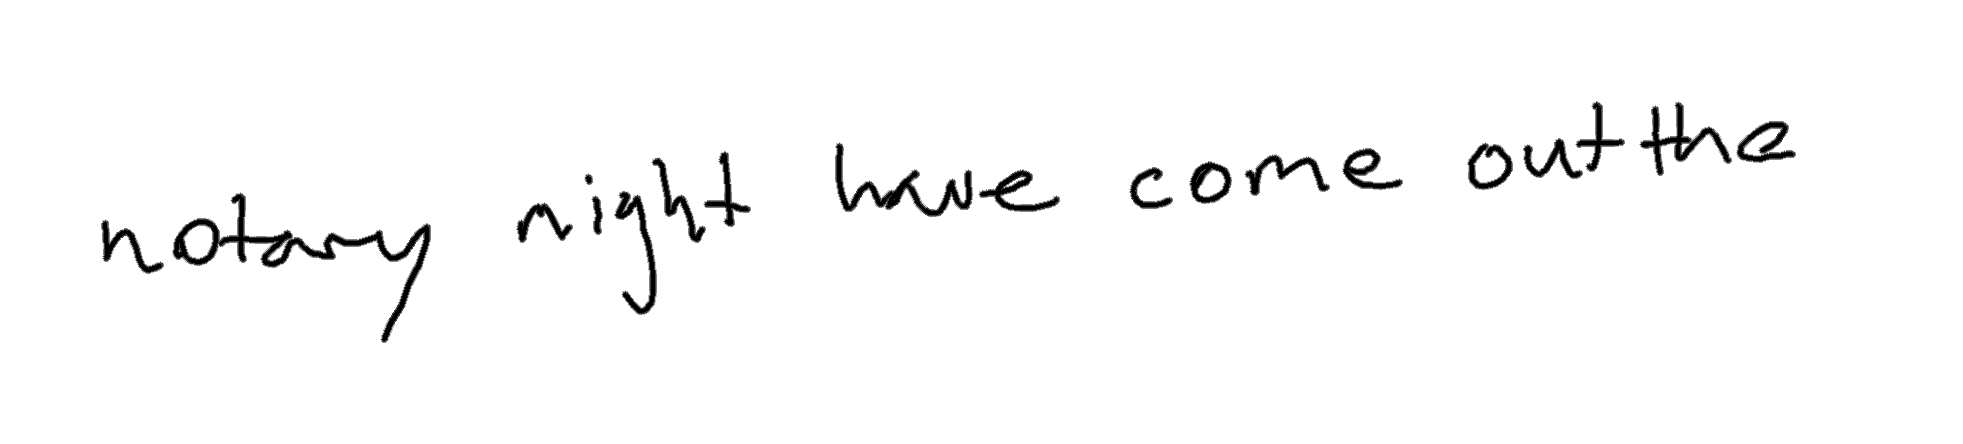 notary night have come out the